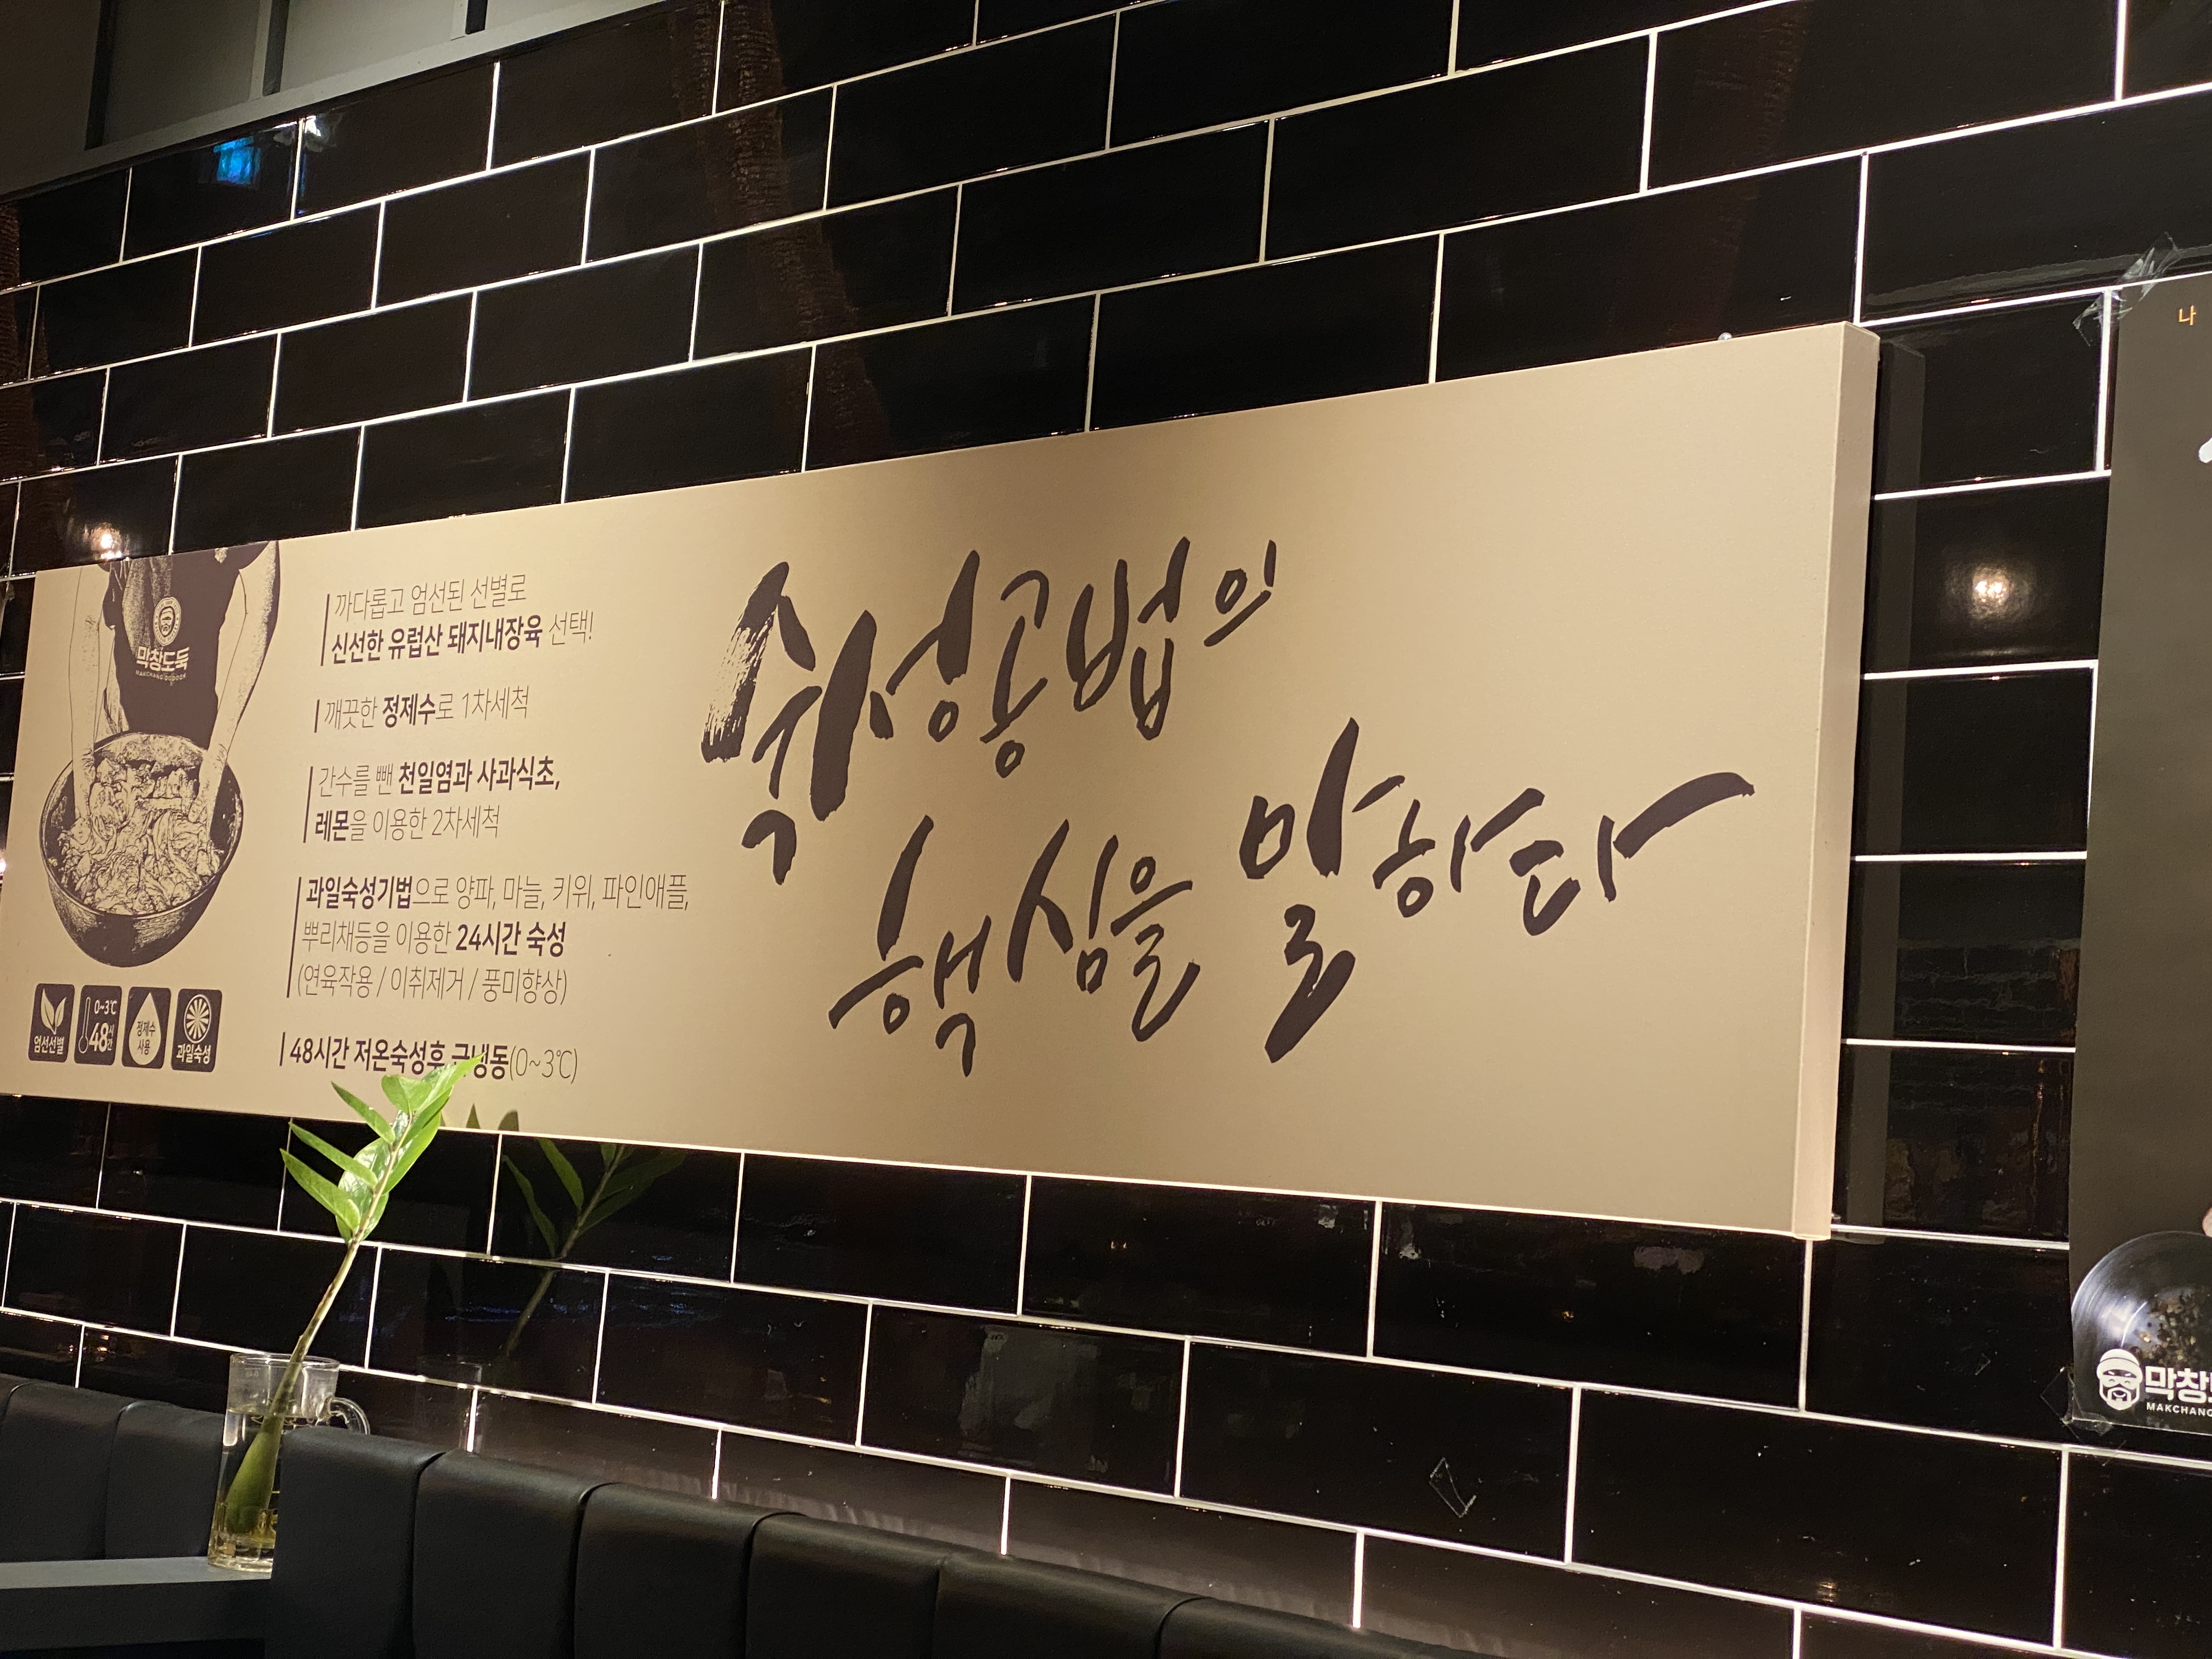 막창도둑
MAKCHANG DODOOK
까다롭고 엄선된 선별로
신선한 유럽산 돼지내장육 선택!
깨끗한 정제수로 1차세척
간수를 뺀 천일염과 사과식초,
레몬을 이용한 2차세척
과일숙성기법으로 양파, 마늘, 키위, 파인애플,
뿌리채등을 이용한 24시간 숙성
(연육작용 / 이취제거 / 풍미향상)
48시간 저온숙성후 급냉동(0~3℃)
엄선선별
0~3℃
48시간
정제수
사용
과일숙성
숙성공법의
핵심을 말하다
나
막창도
MAKCHANG